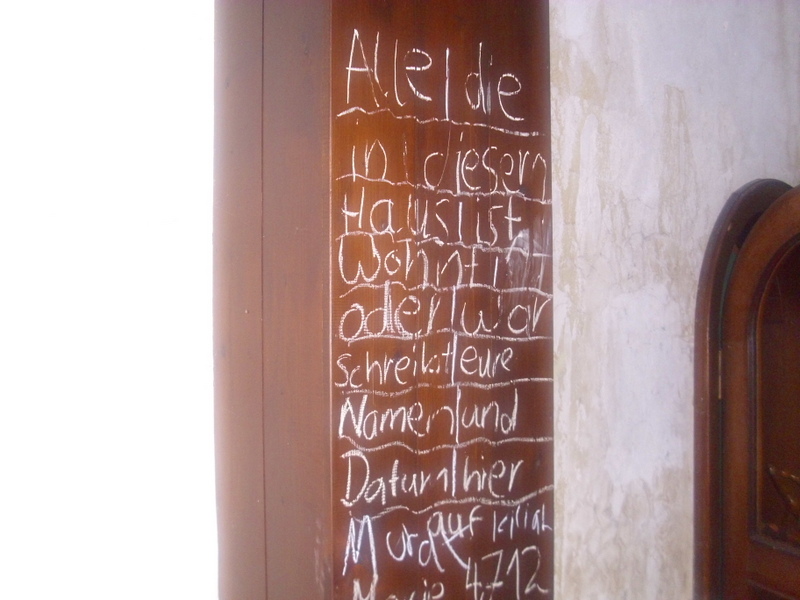 Alle|die
in|diesem
Haus|ist
Wohnt
oder|war
schreibt|eure
Namen|und
Datum|hier
auf kilian
Marie 4712